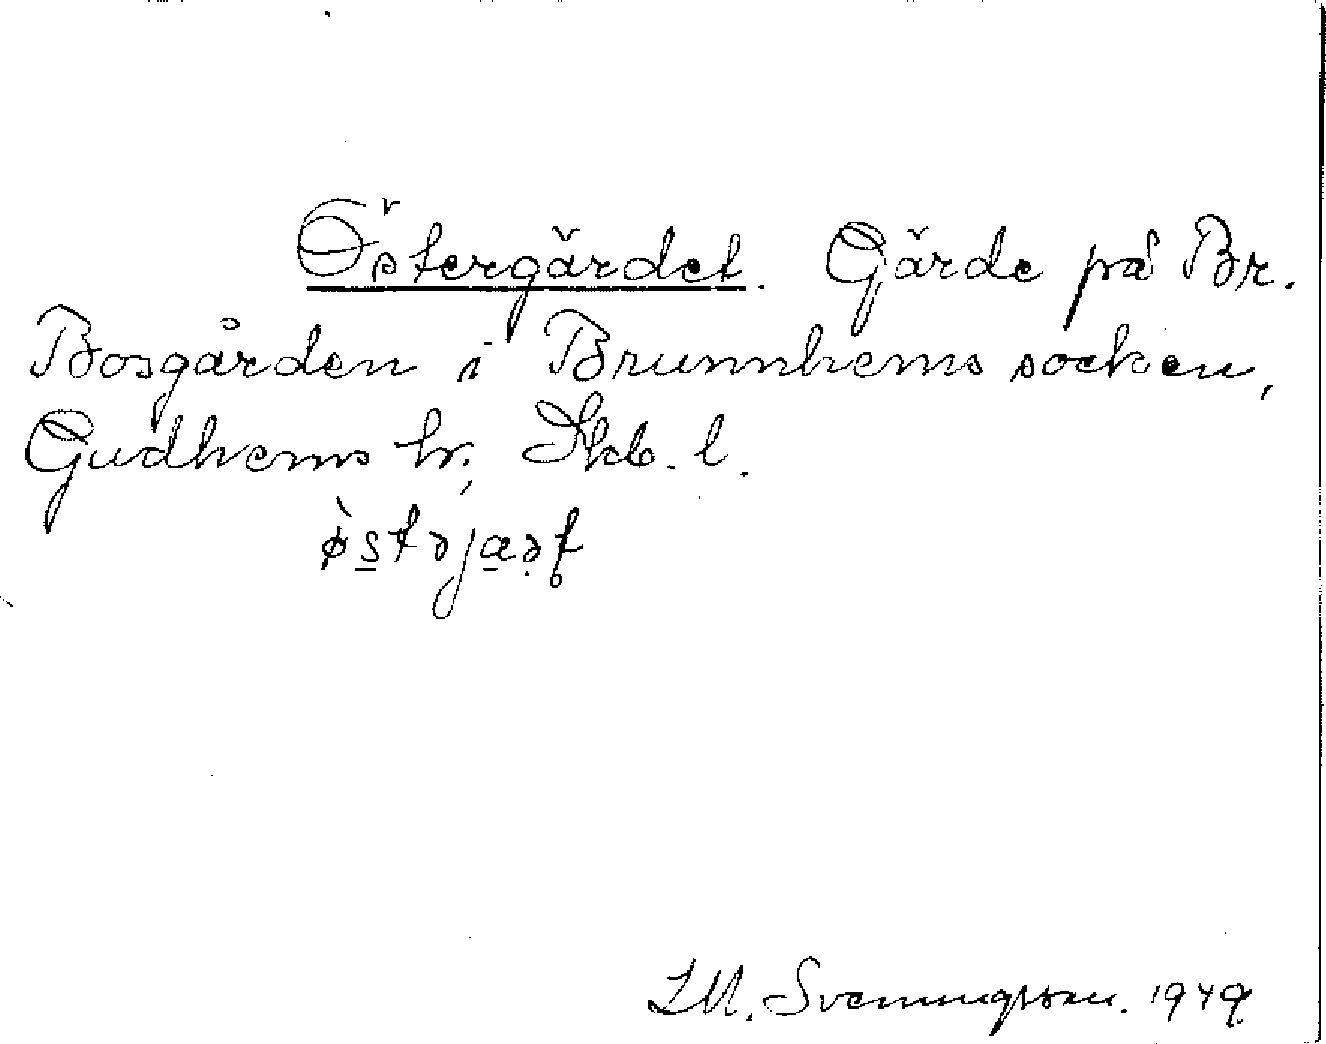 Östergärdet. Gärde på Br.
Bosgården i Brunnhems socken,
Gudhems hr, Skb. l.
M. Svenningsson. 1949.